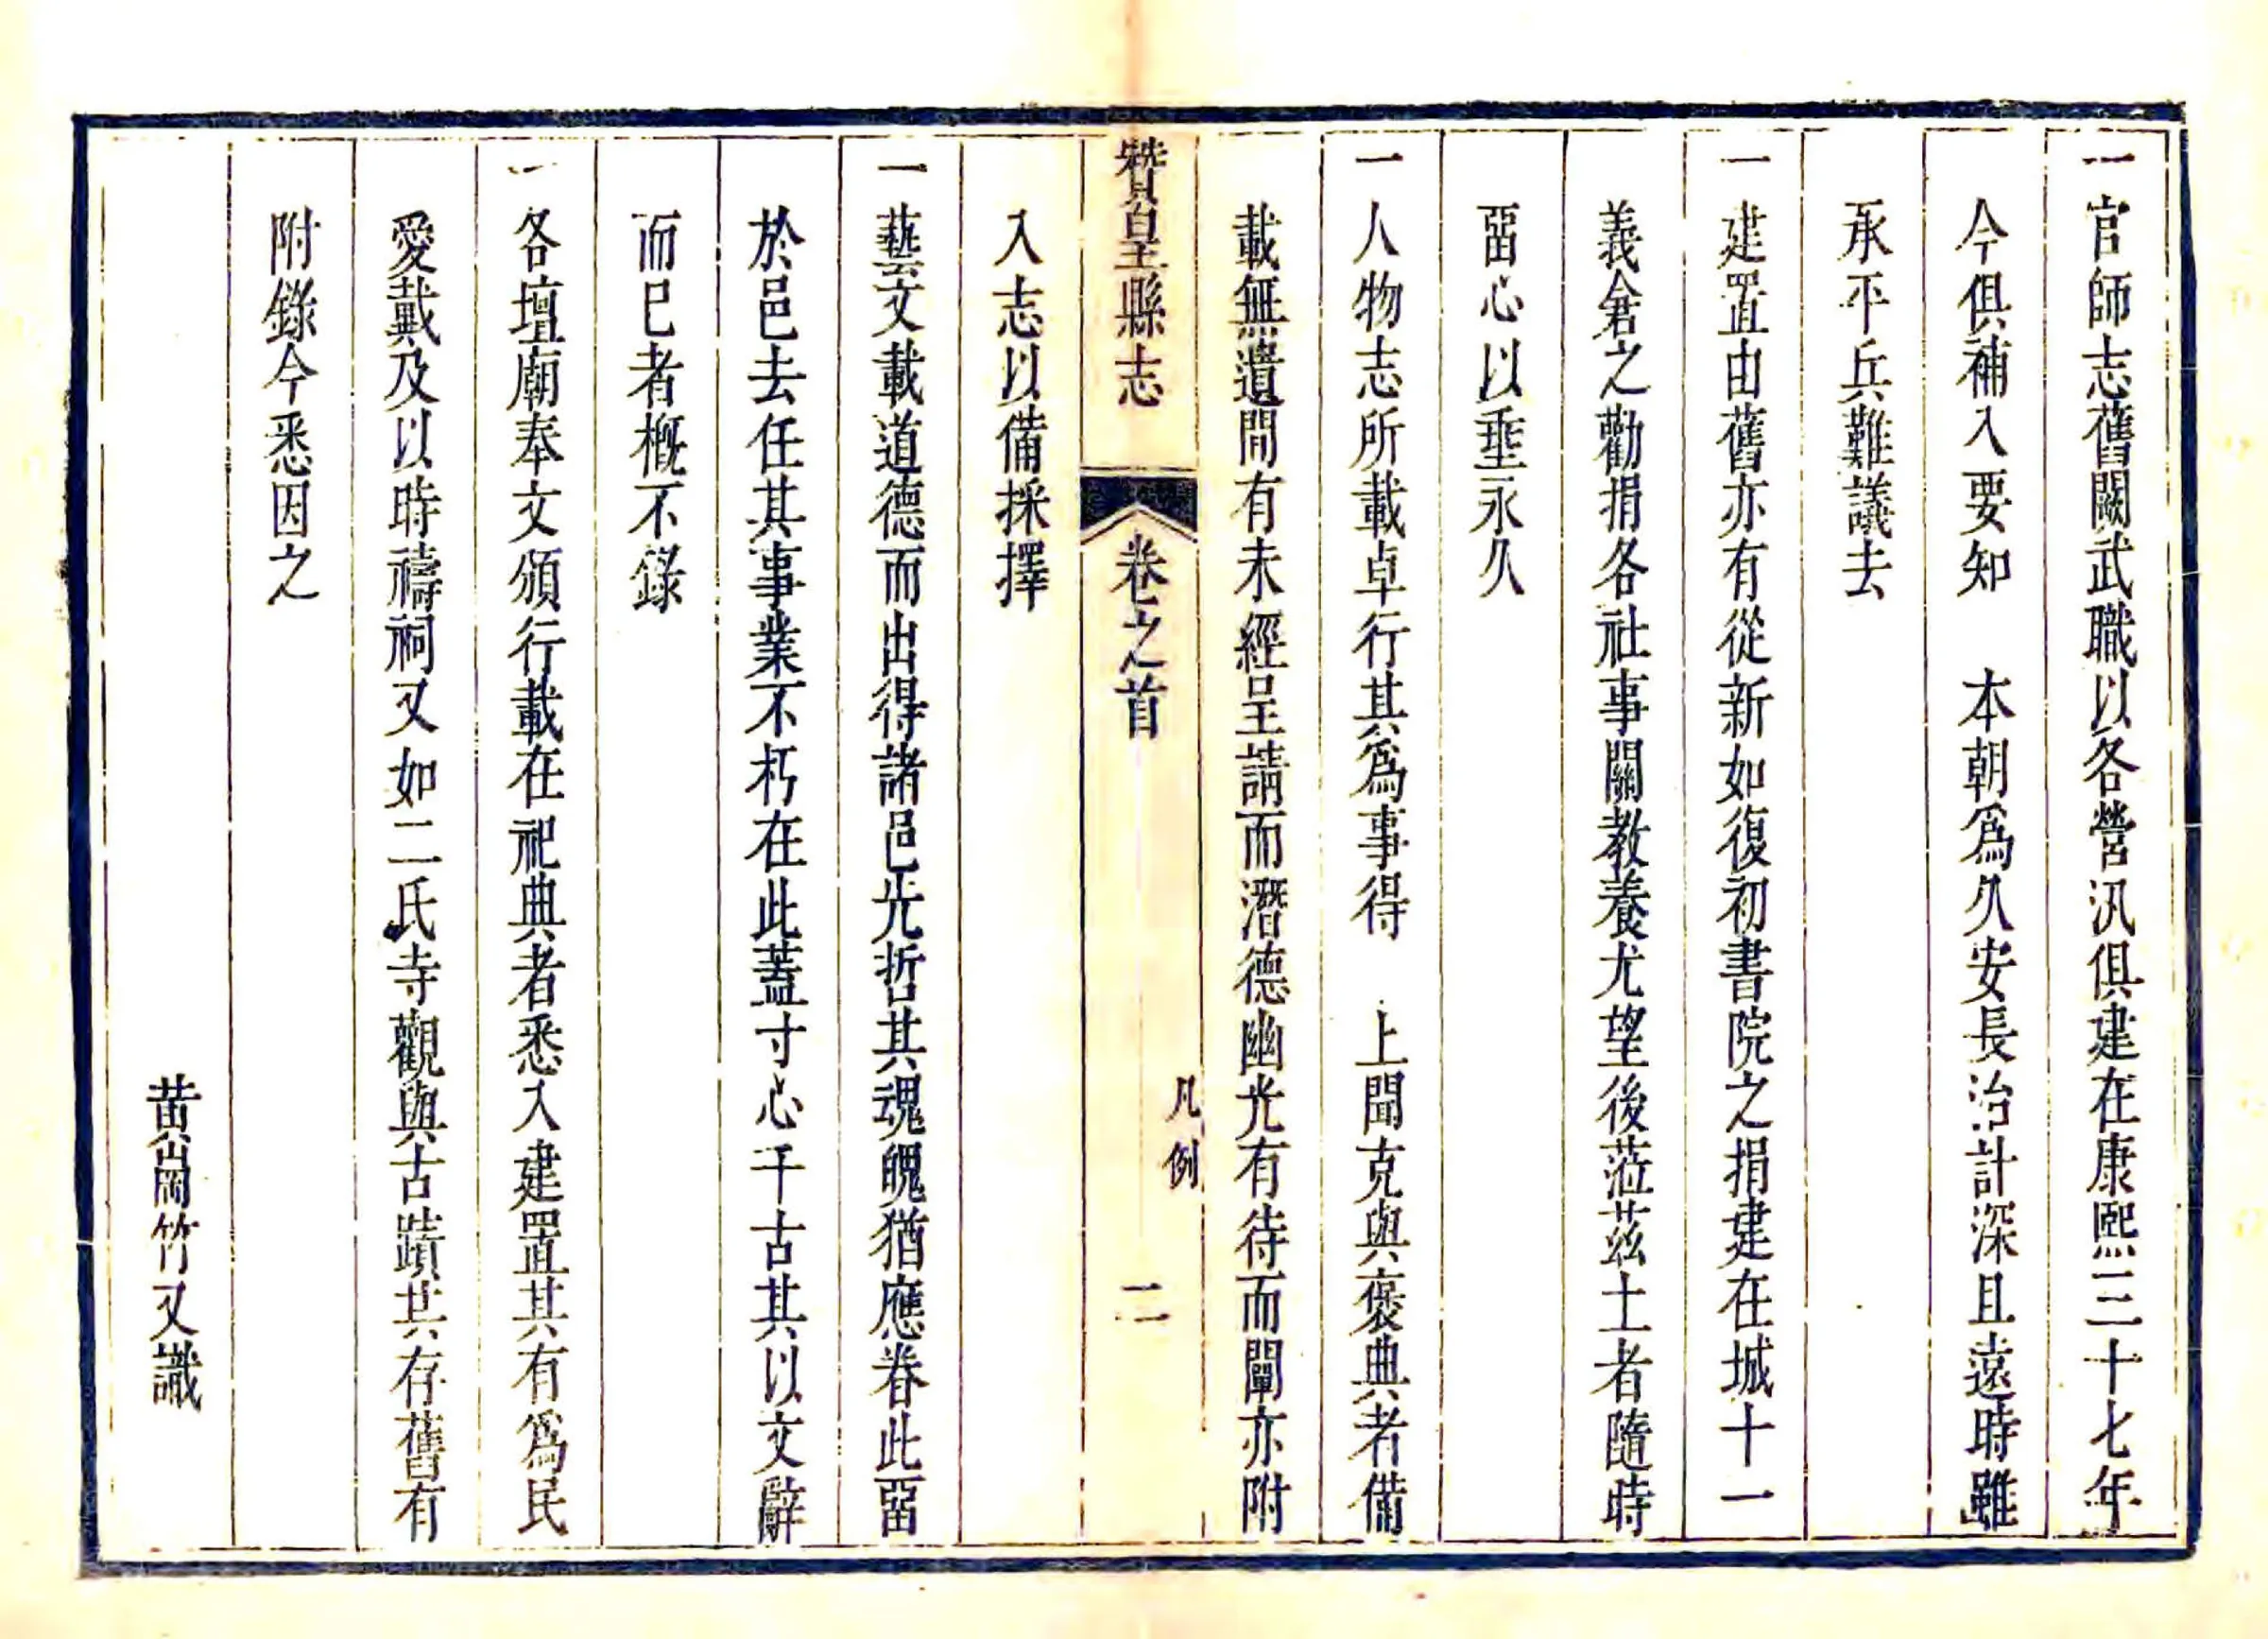 一官師志舊闕武職以各營汛俱建在康熙三十七年
今俱補入要知　本朝爲久安長治計深且遠時雖
承平兵難議去
一建置由舊亦有從新如復初書院之捐建在城十一
義倉之勸捐各社事關教養尤望後蒞茲土者隨時
畱心以垂永久
一人物志所載卓行其爲事得　上聞克與褒典者備
載無遺間有未經呈請而潛德幽光有待而闡亦附
贊皇縣志　卷之首　凡例　二
入志以備採擇
一藝文載道德而出得諸邑先哲其魂魄猶應眷此畱
於邑去任其事業不朽在此蓋寸心千古其以文辭
而已者槪不錄
一各壇廟奉文頒行載在祀典者悉入建置其有爲民
愛戴及以時禱祠又如二氏寺觀與古蹟其存舊有
附錄今悉因之
黃岡竹又識